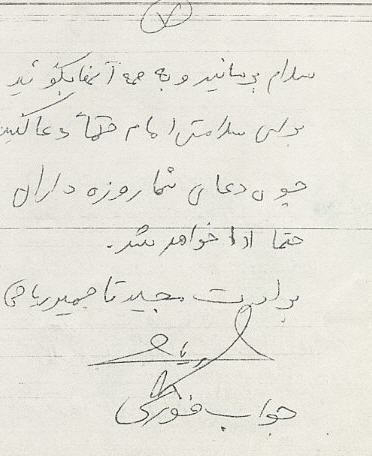 ۷
سلام برسانید و به همه آنها بگوئید
برای سلامتی امام حتماً دعا کنید
چون دعای شما روزه داران
حتما ادا خواهد شد.
برادرت مجید
جواب فوری